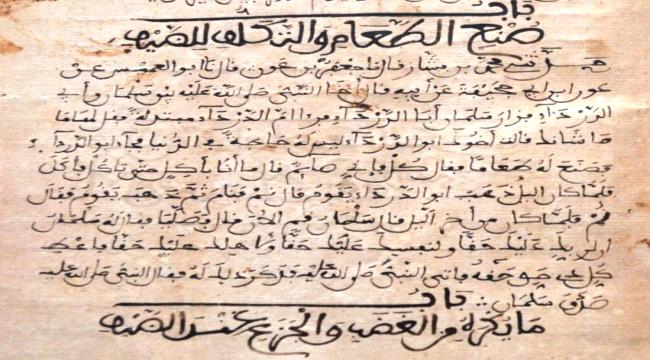 باب
صنع الطعام والتكلف للضيف
حدثني محمد بن بشار قال نا جعفر بن عون قال نا ابو العميس عن
عون ابن ابي جحيفة عن ابيه قال اخا النبي صلى الله عليه بين سلمان وأبي
الدرداء فزار سلمان أبا الدرداء فرءا ام الدرداء مبتذلة فقال لها ما
ما شانك قالت اخوك ابو الدرداء ليس له حاجة في الدنيا فجاء ابو الدرداء
فصنع له طعاما فقال كل فاني صائم قال ما أنا بأكل حتى تاكل فأكل
فلما كان اليل ذهب ابو الدرداء يقوم قال نم فنام ثم ذهب يقوم فقال
نم فلما كان من أخر اليل قال سلمان قم الان قال فصليا فقال له سلمان
ان لربك عليك حقا ولنفسك عليك حقا ولاهلك عليك حقا فاعط
كل ذي حق حقه فاتى النبي صلى الله عليه فذكر ذلك له فقال النبي صلى الله عليه
صدق سلمان باب
ما يكره من الغضب والجزع عند الضيف